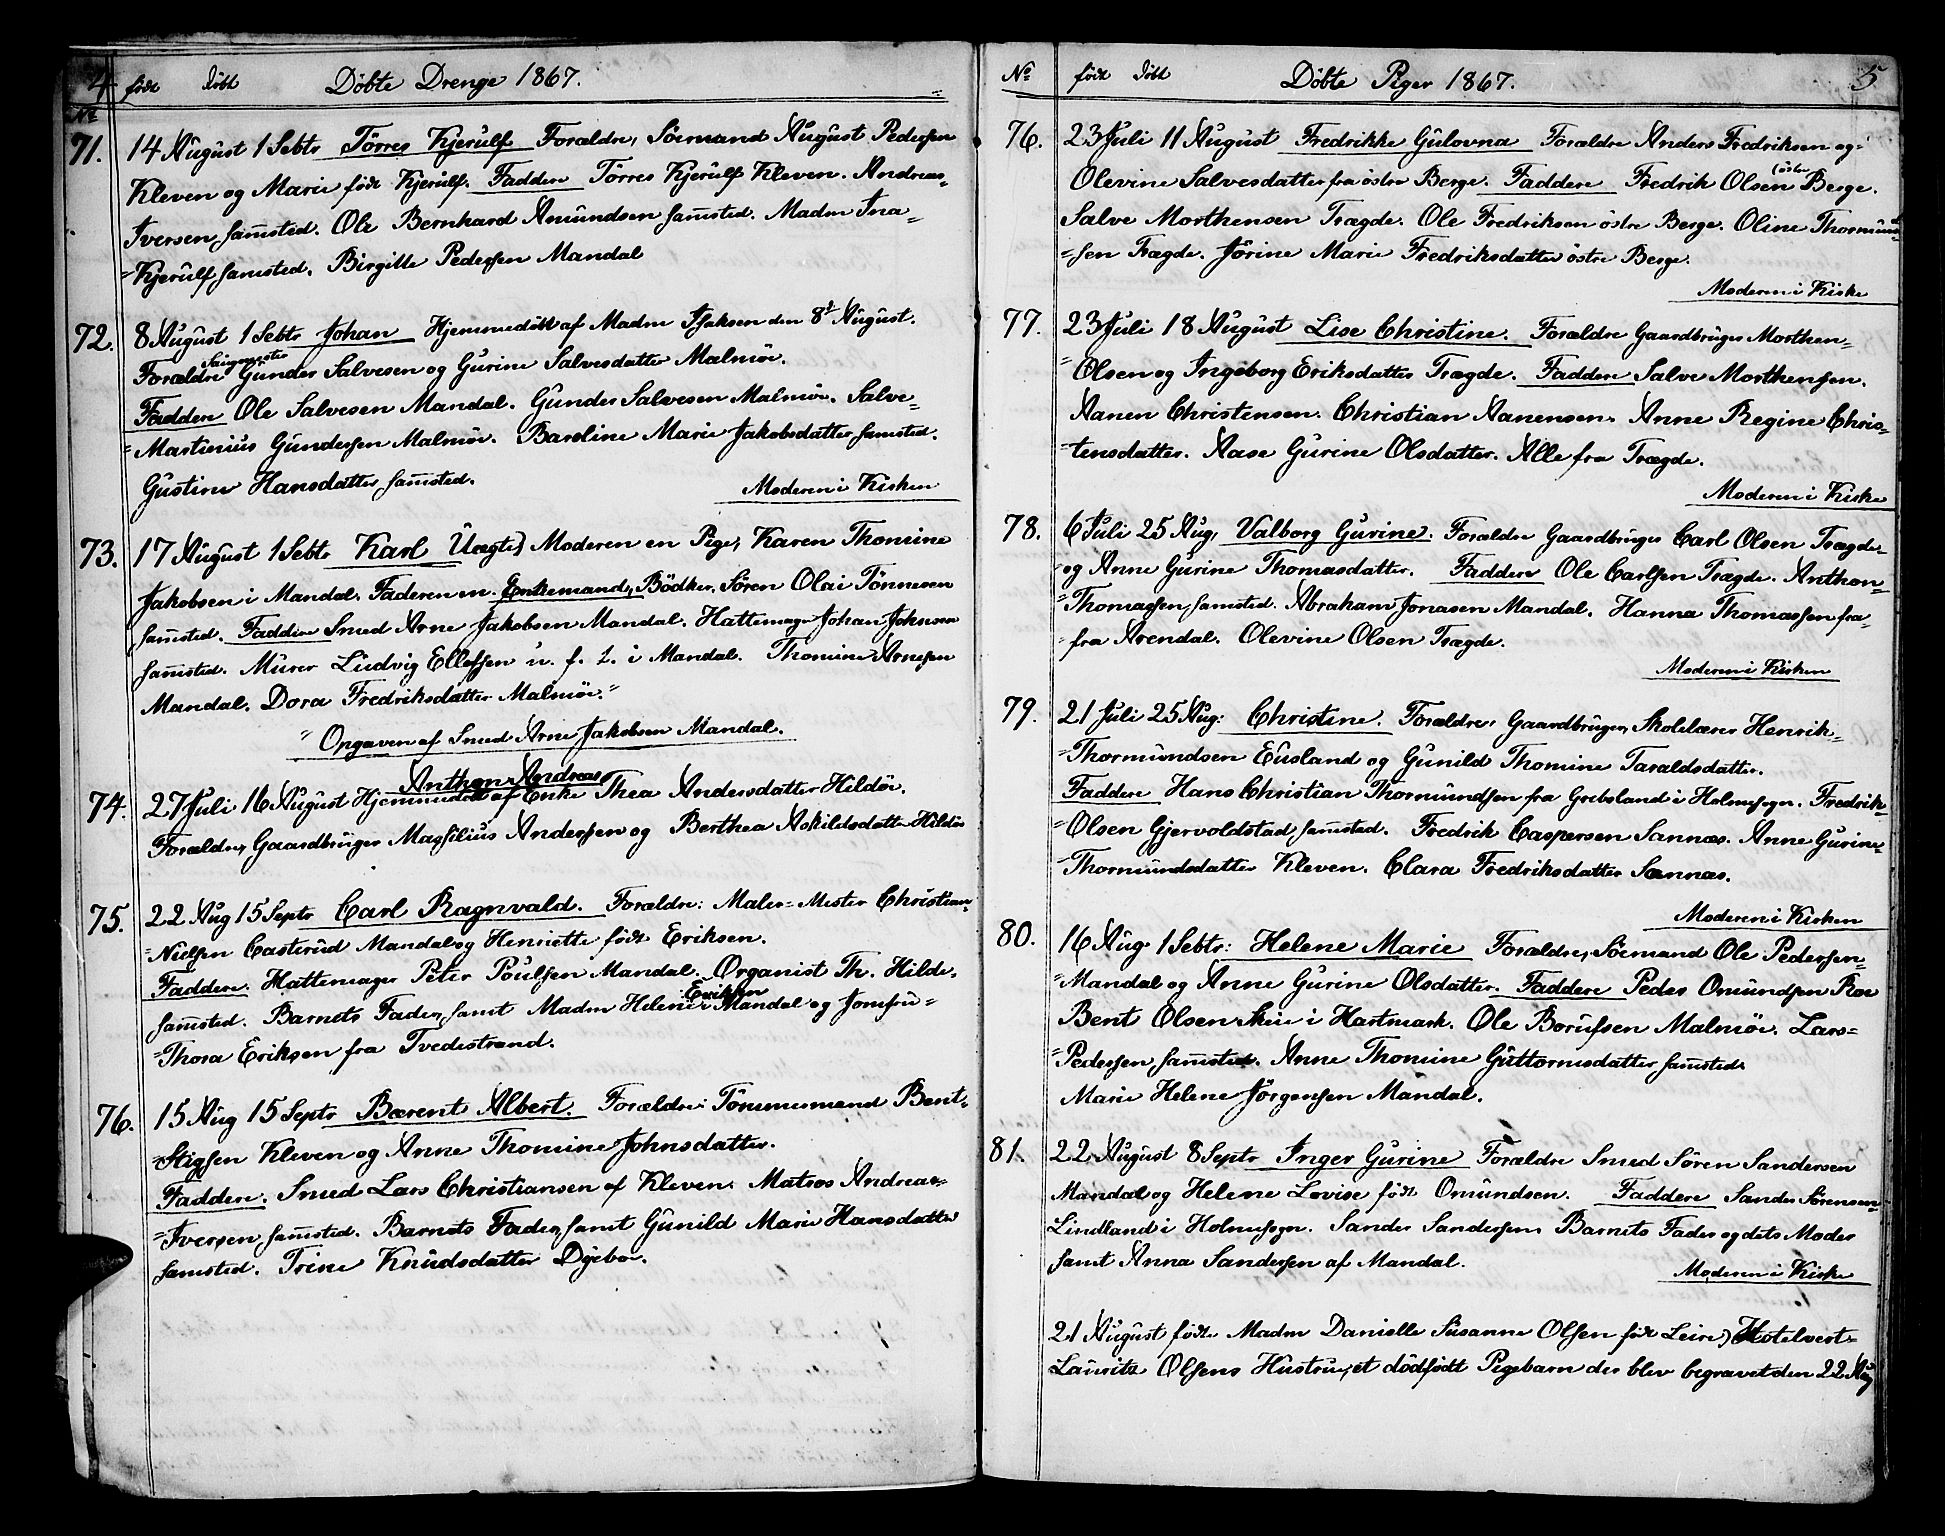 4 født døbt Döbte Drenge 1867.
No
71. 14 August 1 Sebtr Törres Kjerulf Forældre, Söemand August Pedersen
Kleven og Marie født Kjerulf. Faddere Törres Kjerulf Kleven. Andreas=
Iversen samsted. Ole Bernhard Amundsen samsted. Madm Ina=
=Kjerulf samsted. Birgitte Pedersen Mandal
72. 8 August 1 Sebtr Johan Hjemmedöbt af Madm Isaksen den 8d August.
Forældre Gunder Salvesen og Gurine Salvesdatter Malmöe.
Faddere Ole Salvesen Mandal. Gunder Salvesen Malmöe. Salve=
=Martinius Gundersen Malmöe. Baroline Marie Jakobsdatter samsted.
Gustine Hansdatter samsted.
Moderen i Kirken
73. 17 August 1 Sebtr Karl Uægte) Moderen en Pige, Karen Thomine
Jakobsen i Mandal. Faderen en Enkemand, Bödker Sören Olai Tönnesen
samsted. Faddere Smed Arne Jakobsen Mandal. Hattemager Johan Johnsen
samsted. Murer Ludvig Ellefsen u. f. L. i Mandal. Thomine Arnesen
Mandal. Dora Fredriksdatter Malmöe."
"Opgaven af Smed Arne Jakobsen Mandal.
Anthon Andreas
74. 27 Juli 16 August Hjemmedöbt af Enke Thea Andersdatter Hildöe.
Forældre, Gaardbruger Massilius Andersen og Berthea Askildsdatter Hildöe
75. 22 Aug 15 Septr Carl Ragnvald. Forældre: Maler=Mester Christian=
=Nielsen Casterud Mandal og Henriette født Eriksen.
Faddere. Hattemager Peter Poulsen Mandal. Organist Th. Hilde,
Eriksen
samsted. Barnets Fader, samt Madm Helene i Mandal og Jomfru=
=Thora Eriksen fra Tvedestrand.
76. 15 Aug 15 Septr Bærent Albert. Forældre: Tömmermand Bent=
=Stigsen Kleven og Anne Thomine Johnsdatter.
Faddere. Smed Lars Christiansen af Kleven. Matros Andreas=
=Iversen samsted. Barnets Fader, samt Gunild Marie Hansdatter
samsted. Trine Knudsdatter Dyebo.
No født döbt Döbte Piger 1867. 5
76. 23 Juli 11 August Fredrikke Gulovna Forældre Anders Fredriksen og=
(östre
Olevine Salvesdatter fra östre Berge. Faddere Fredrik Olsen Berge.
Salve Morthensen Trægde. Ole Fredriksen östre Berge. Oline Thormund=
=sen Trægde. Jörine Marie Fredriksdatter östre Berge.
Moderen i Kirke
77. 23 Juli 18 August Lise Christine. Forældre Gaardbruger Morthen=
=Olsen og Ingeborg Eriksdatter Trægde. Faddere Salve Morthensen.
Aanen Christensen. Christian Aanensen. Anne Regine Chris=
=tensdatter. Aase Gurine Olsdatter. Alle fra Trægde.
Moderen i Kirke
78. 6 Juli 25 Aug, Valborg Gurine. Forældre Gaardbruger Carl Olsen Trægde=
og Anne Gurine Thomasdatter. Faddere Ole Carlsen Trægde. Anthon=
=Thomassen samsted. Abraham Jonasen Mandal. Hanna Thomassen fra=
=fra Arendal. Olevine Olsen Trægde.
Moderen i Kirken
79. 21 Juli 25 Aug: Christine. Forældre, Gaardbruger, Skolelærer Henrik=
=Thormundsen Eusland og Gunild Thomine Taraldsdatter.
Faddere Hans Christian Thormundsen fra Grebsland i Holmesogn. Fredrik=
=Olsen Gjervoldstad samsted. Fredrik Caspersen Sannæs. Anne Gurine=
=Thormundsdatter Kleven. Clara Fredriksdatter Sannæs.
Moderen i Kirken
80. 16 Aug 1 Sebtr: Helene Marie Forældre, Söemand Ole Pedersen=
=Mandal og Anne Gurine Olsdatter. Faddere Peder Omundsen Roe
Bent Olsen Skeie i Hartmark. Ole Borufsen Malmöe. Lars=
=Pedersen samsted. Anne Thomine Guttormsdatter samsted.
Marie Helene Jörgensen Mandal.
81. 22 August 8 Septr Inger Gurine Forældre Smed Sören Sandersen
Mandal og Helene Lovise født Omundsen. Faddere Sander Sörensen=
Lindland i Holmesogn. Sander Sandersen Barnets Fader og dets Moder
samt Anna Sandersen af Mandal.
Moderen i Kirke
21 August fødte Madm Danielle Susanne Olsen født Leire) Hotelvert=
Lauritz Olsens Hustru, et dödfödt Pigebarn der blev begravet den 22 Aug